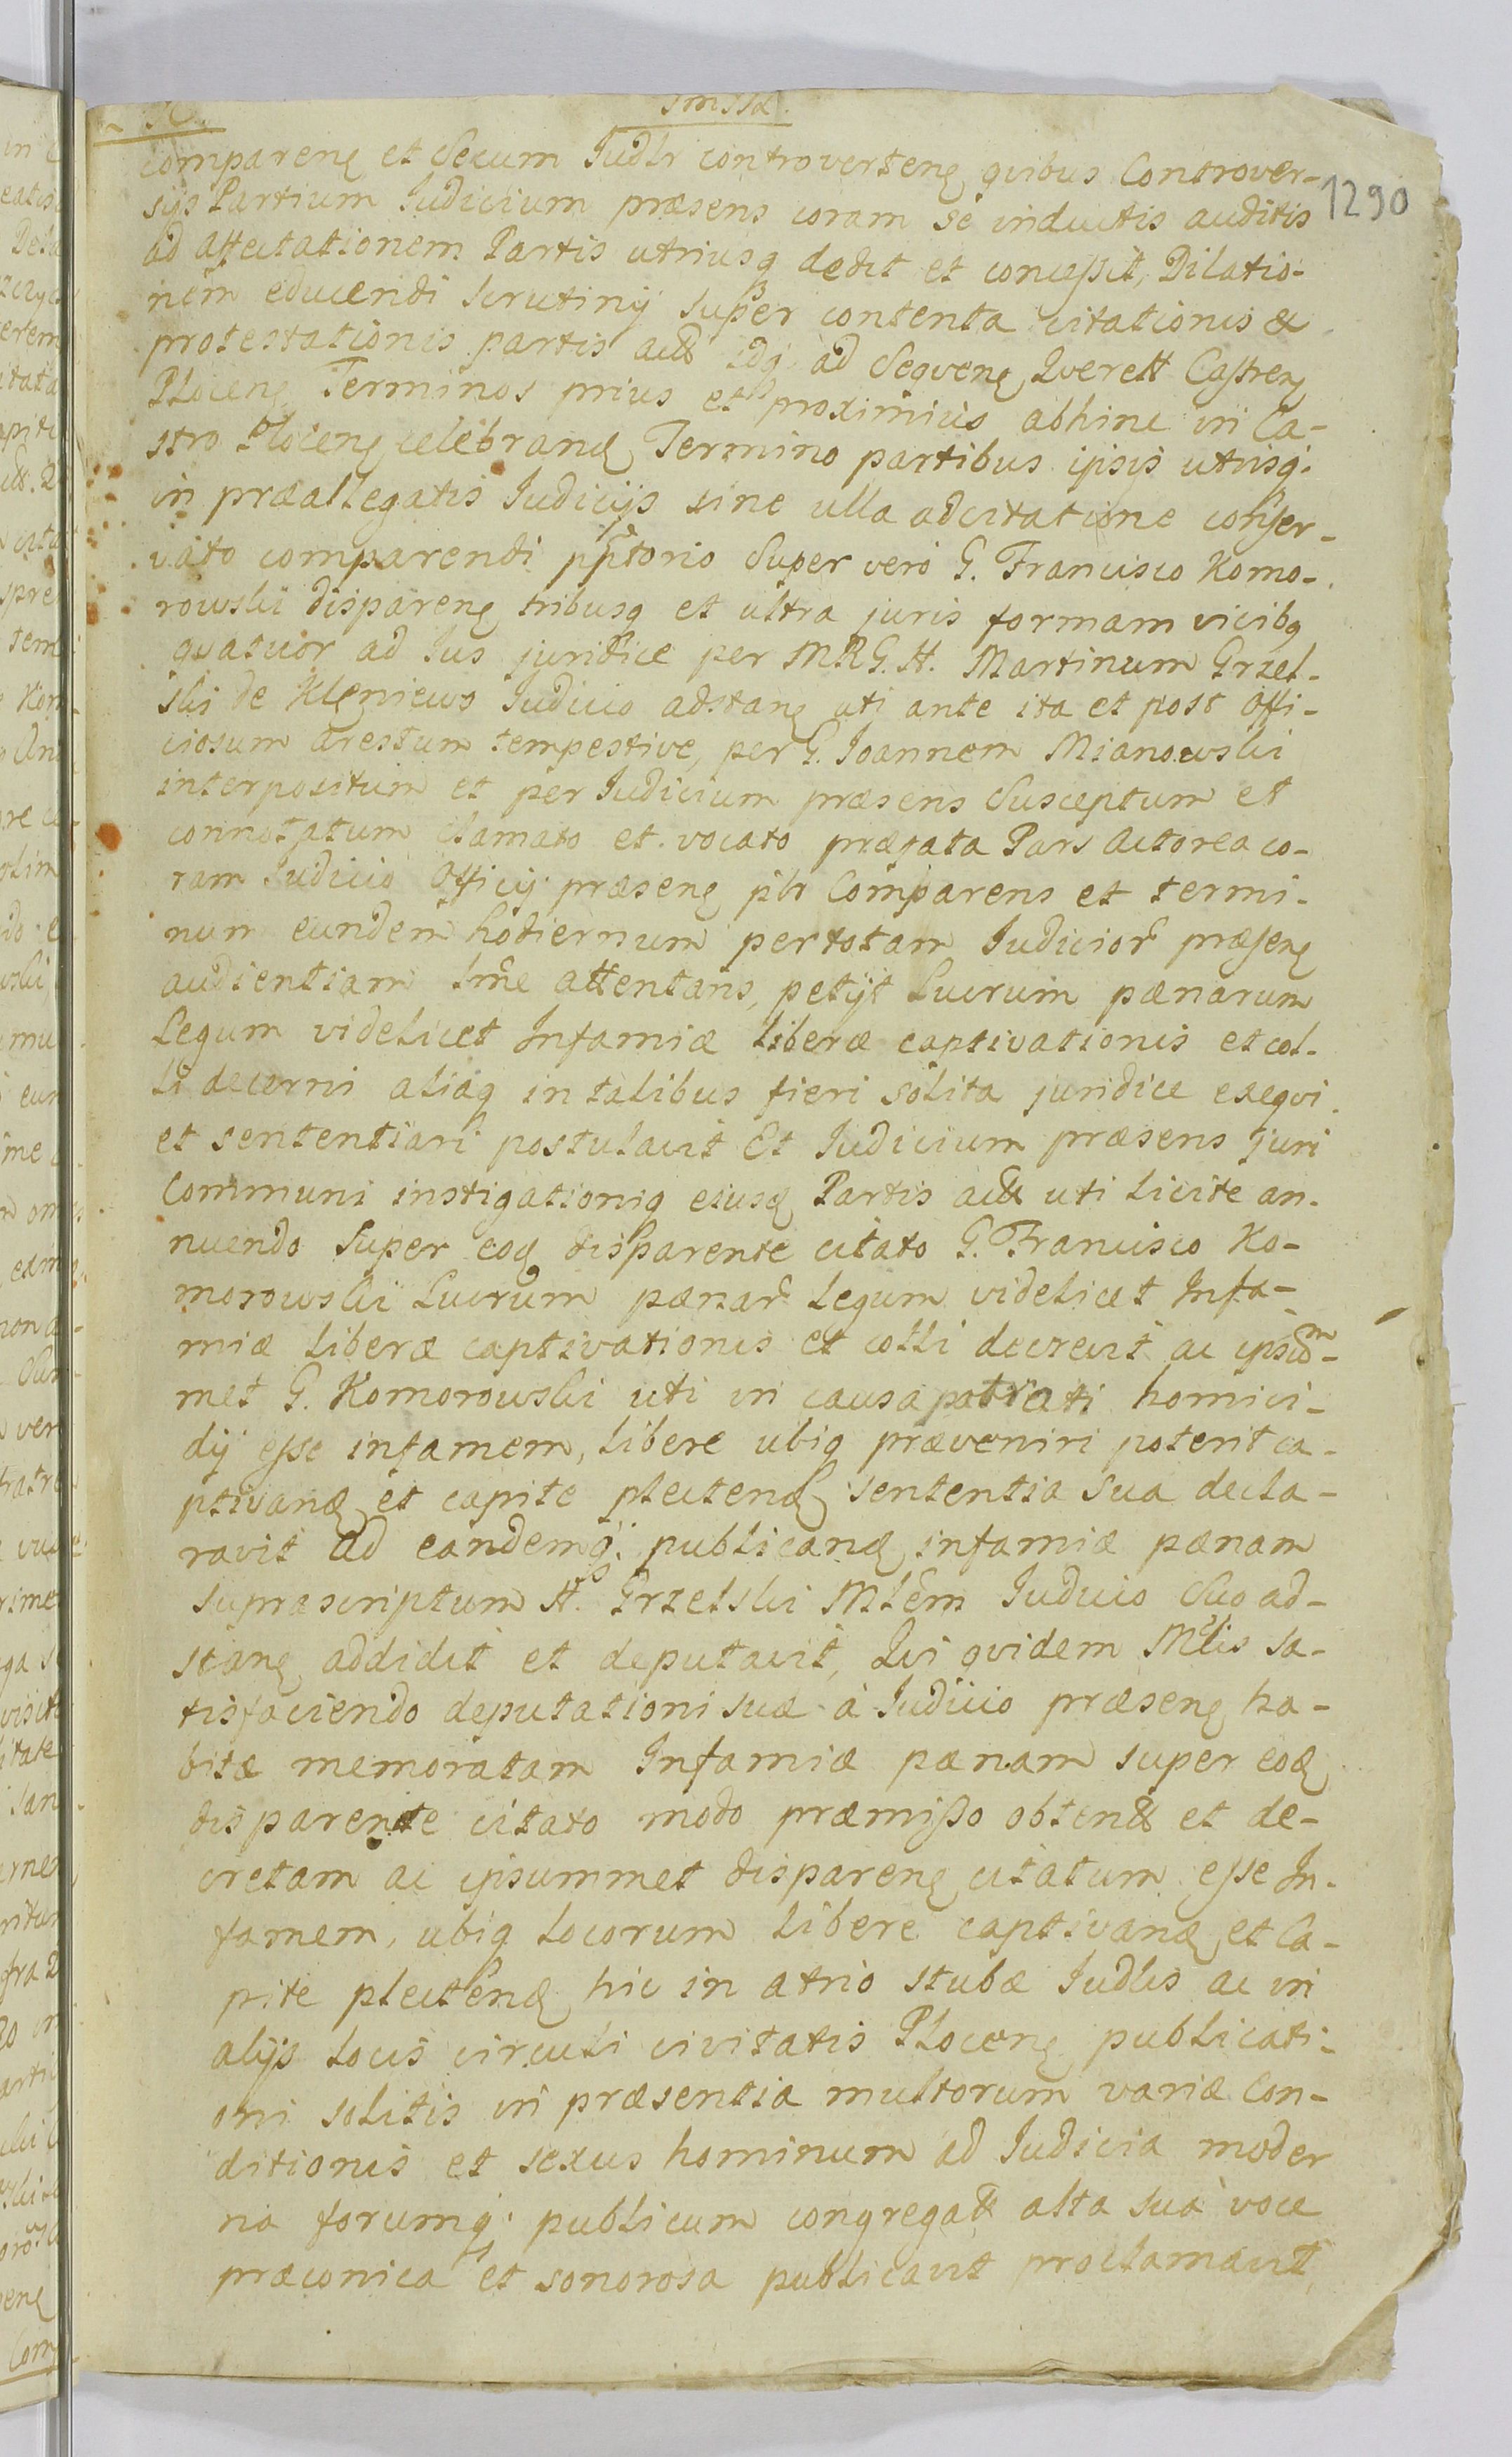 1290
compareng et Secum Judlr controverteng quibus Controver-
sijs Partium Judicium præsens coram se inductis auditis
ad affectationem Partis utriusq dedit et concessit, Dilatio-
nem educendi scrutinij super contenta citationis &
protestationis partis act ad Seqveng Qverett Castreng
Ploceng Terminos prius et proximius abhinc in Ca-
stro Ploceng celebrand Termino partibus ipsis utrisq.
in præallegatis Judicijs sine ulla adcitatione conser-
vato comparendi pptorio Super vero G. Francisco Komo-
rowski dispareng tribusq et ultra juris formam vicibq
quatuor ad Jus juridice per MRG. H. Martinum Grzel-
ski de Kleniewo Judicio adstang uti ante ita et post Offi-
ciosum Arestum tempestive, per G. Joannem Mianowski
interpositum et per Judicium præsens Susceptum et
connotatum clamato et vocato præfata Pars Actorea co-
ram Judicio Officij præseng pbr Comparens et termi-
num eundem hodiernum per totam Judicior præseng
audientiam lrme attentans, petijt Lucrum pænarum
Legum videlicet Infamiæ liberæ captivationis et col-
li decerni aliaq in talibus fieri solita juridice exeqvi
et sententiari postulavit Et Judicium præsens juri
Communi instigationiq eiusd Partis act uti licite an-
nuendo Super eod disparente citato G. Francisco Ko-
morowski Lucrum pænar Legum videlicet Infa-
miæ liberæ captivationis et colli decrevit ac ipsum-
met G. Komorowski uti in causa patrati homici-
dij esse infamem, libere ubiq præveniri poterit ca-
ptivand et capite plectend sententia sua decla-
ravit Ad eandemq. publicand infamiæ pænam
suprascriptum H. Grzelski Mlem Judicio Suo ad-
stang addidit et deputavit, Qvi qvidem Mlis sa-
tisfaciendo deputationi suæ à Judicio præseng ha-
bitæ memoratam Infamiæ pænam super eod
disparente citato modo præmisso obtent et de-
cretam ac ipsummet dispareng citatum esse In-
famem, ubiq locorum libere captivand et Ca-
pite plectend hic in atrio stubæ Judlis ac in
alijs locis circuli civitatis Ploceng publicati-
oni solitis in præsentia multorum variæ Con-
ditionis et sexus hominum ad Judicia moder
na forumq. publicum congregat alta sua voce
præconica et sonorosa publicavit proclamavit